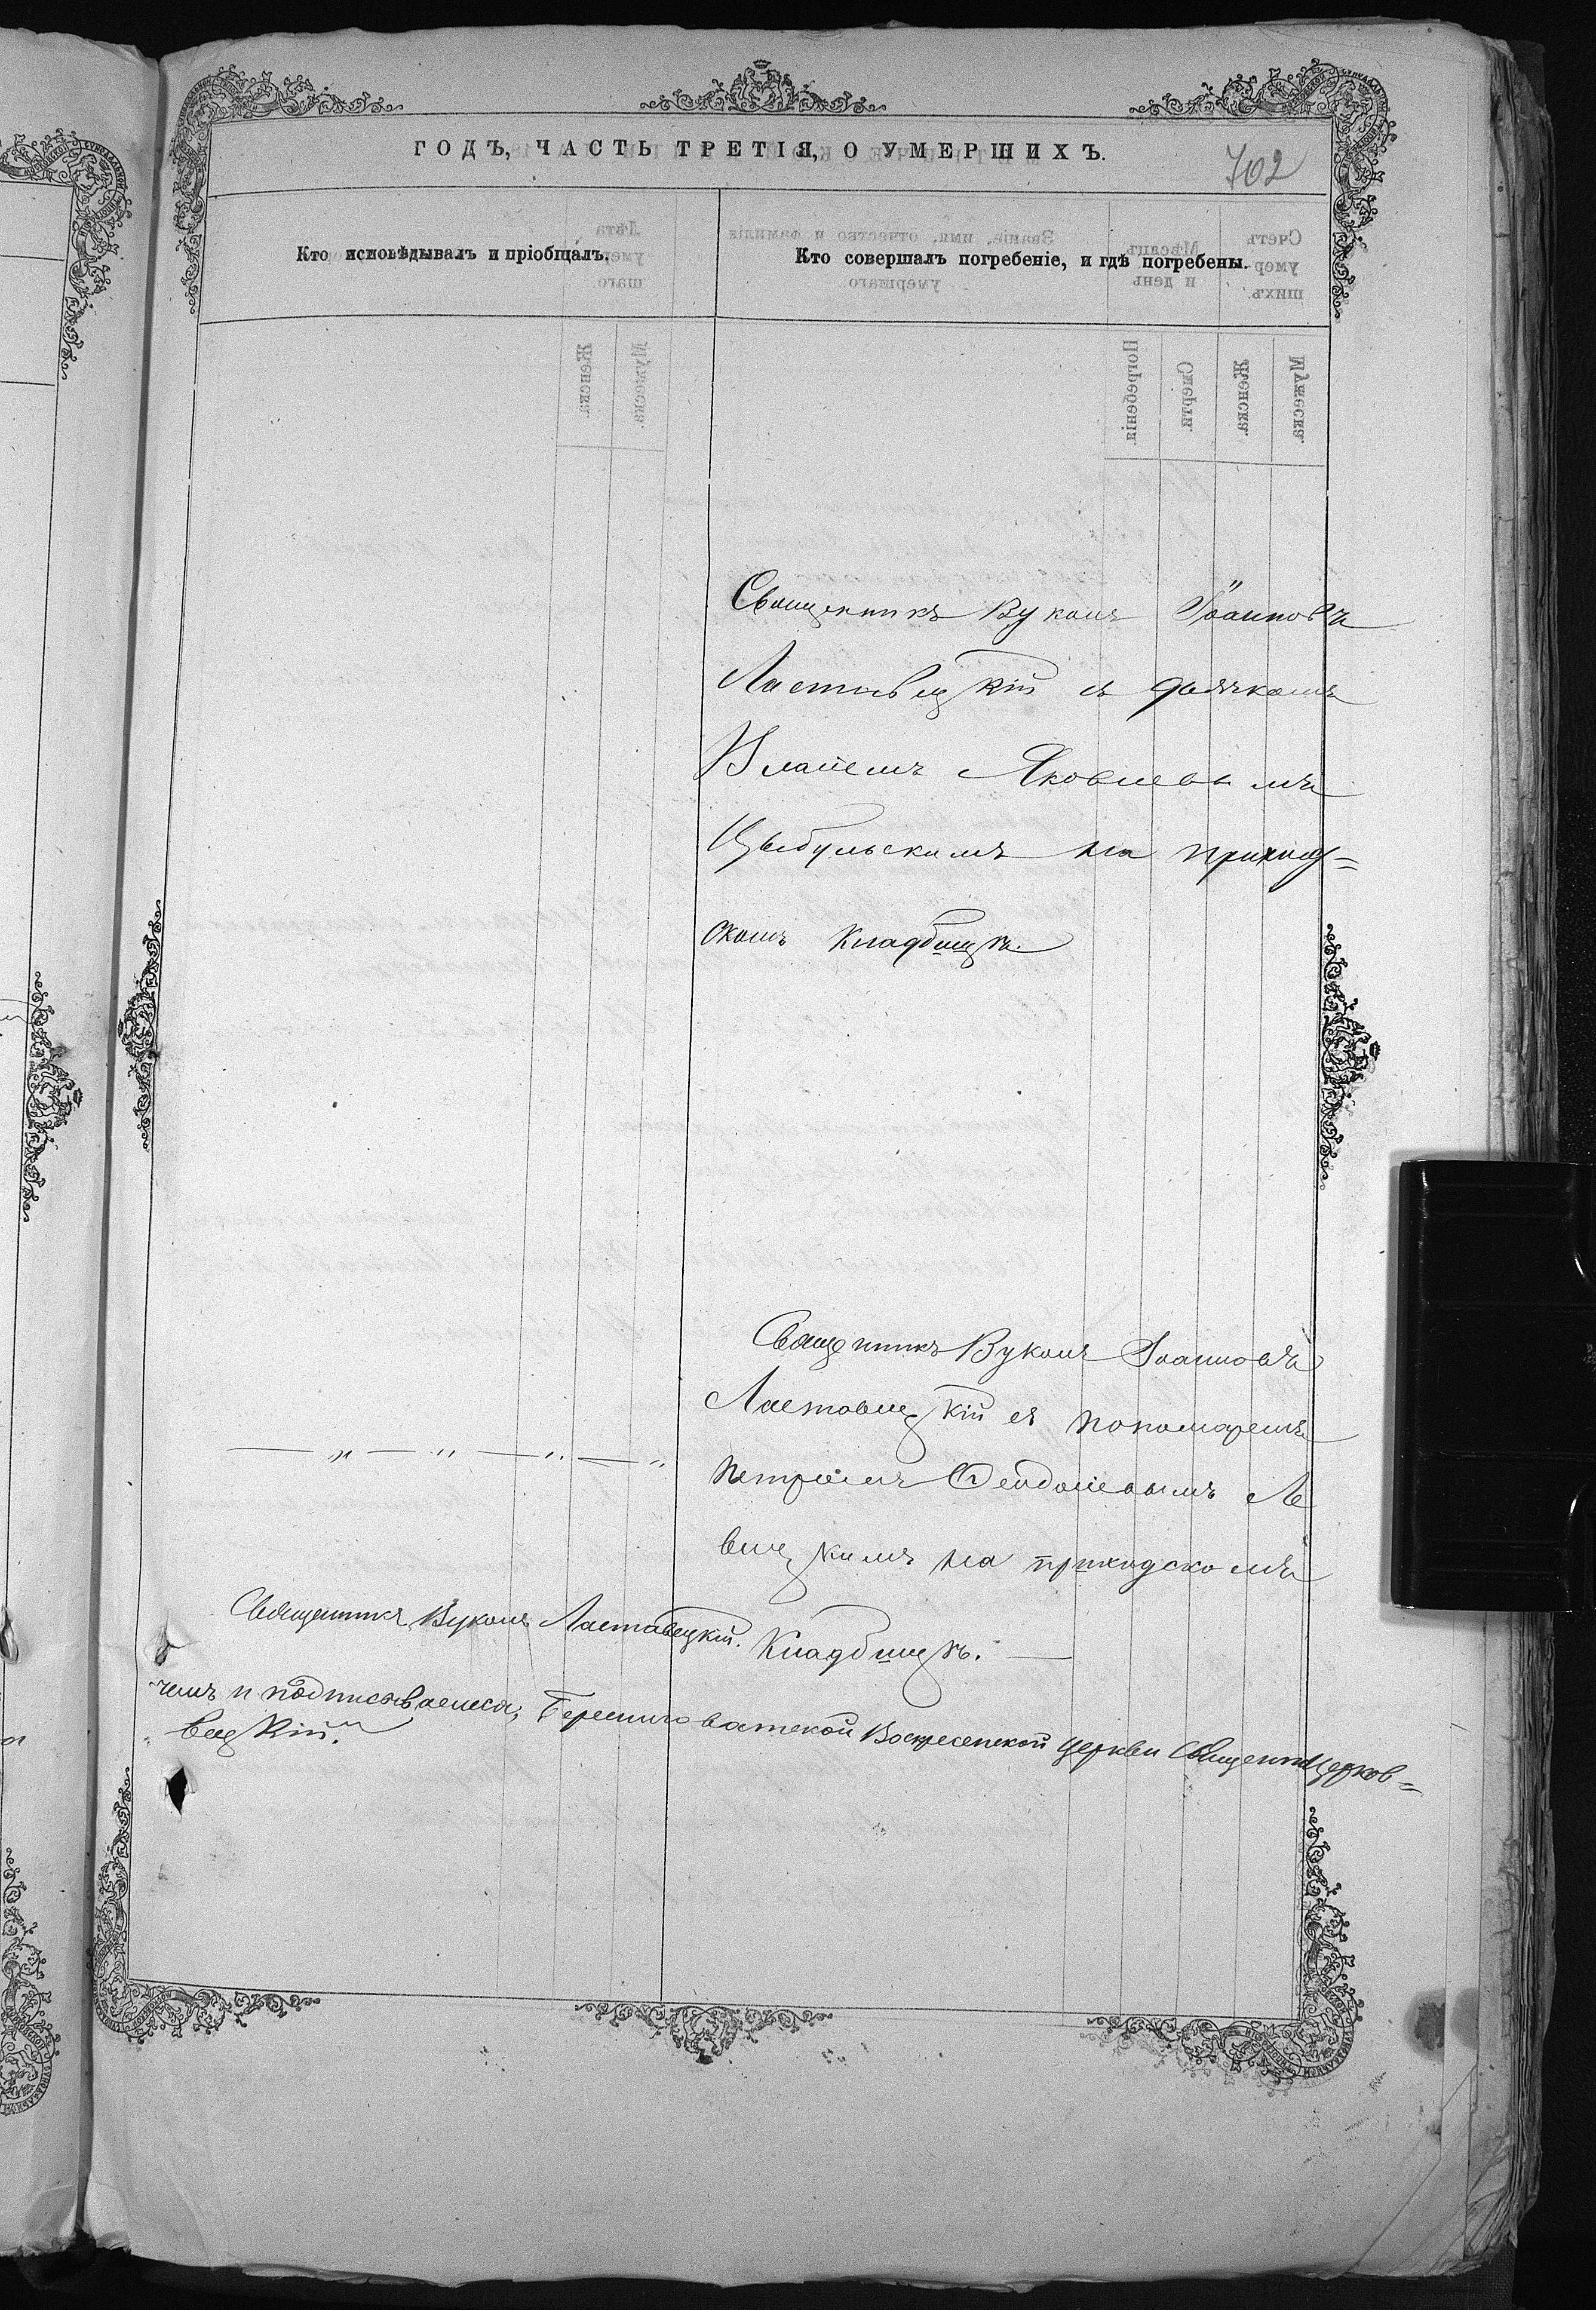 ГОДЪ, ЧАСТЬ ТРЕТІЯ, О УМЕРШИХЪ.
702
Кто исповѣдывалъ и пріобщалъ.
Кто совершалъ погребеніе, и гдѣ погребены.
Священникъ Вуколъ Іоанновъ
Ластовецкій съ дьячкомъ
Власіемъ Яковлевымъ
Цыбульскимъ на приход=
скомъ кладбищѣ.
Священникъ Вуколъ Іоанновъ
Ластовецкій съ пономаремъ
Петромъ Ле
вицкимъ на приходскомъ
кладбищѣ.
Священникъ Вуколъ Ластовецкій.
чемъ и подписываемся, Воскресенской церкви
вецкій.